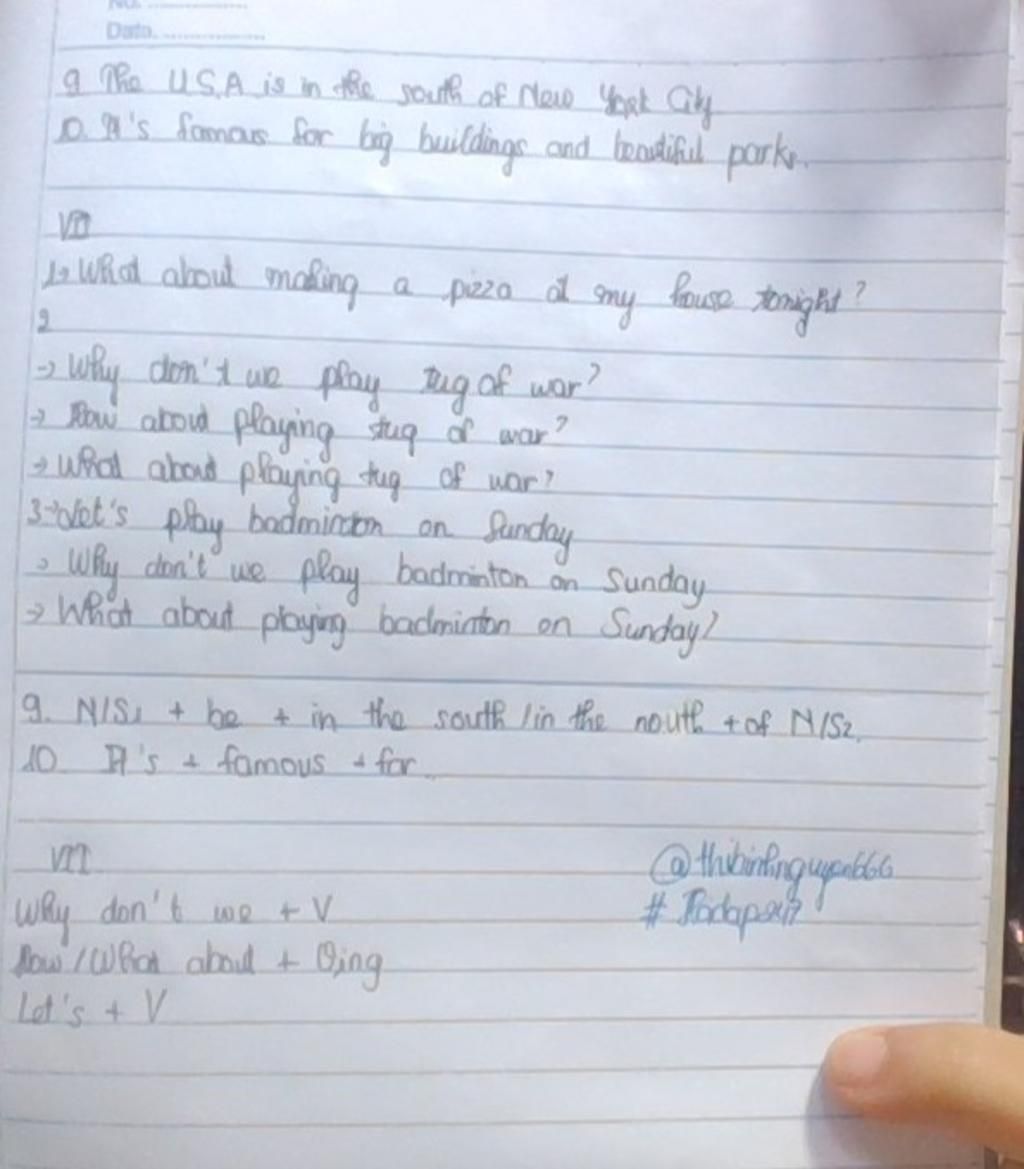 No. ................
Date. ................
9 The U.S.A is in the south of New York City
10. It's famous for big buildings and beautiful parks.
VII
1→ What about making a pizza at my house tonight?
2
→ Why don't we play tug of war?
→ How about playing tug of war?
→ What about playing tug of war?
3→ Let's play badminton on Sunday
→ Why don't we play badminton on Sunday
→ What about playing badminton on Sunday?
9. N/S1 + be + in the south / in the nouth + of N/S2.
10. It's + famous + for
VII
Why don't we + V
How / What about + Ving
Let's + V
@thibinhnguyen666
#